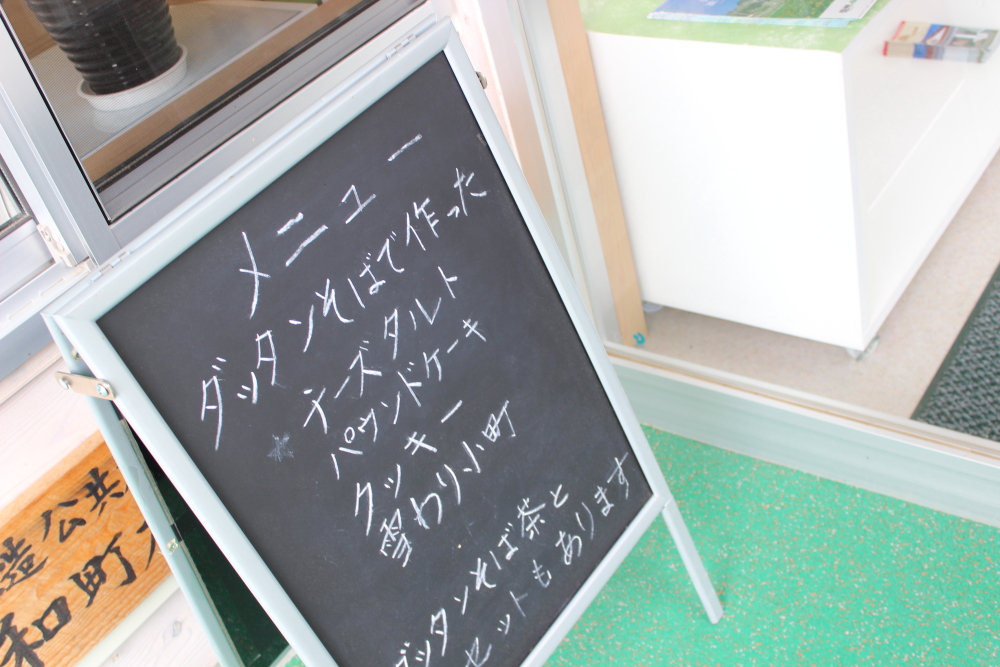 メニュー
ダッタンそばで作った
チーズタルト
パウンドケーキ
クッキー
雪わり小町
ダッタンそば茶と
セットもあります
公共
造
和町